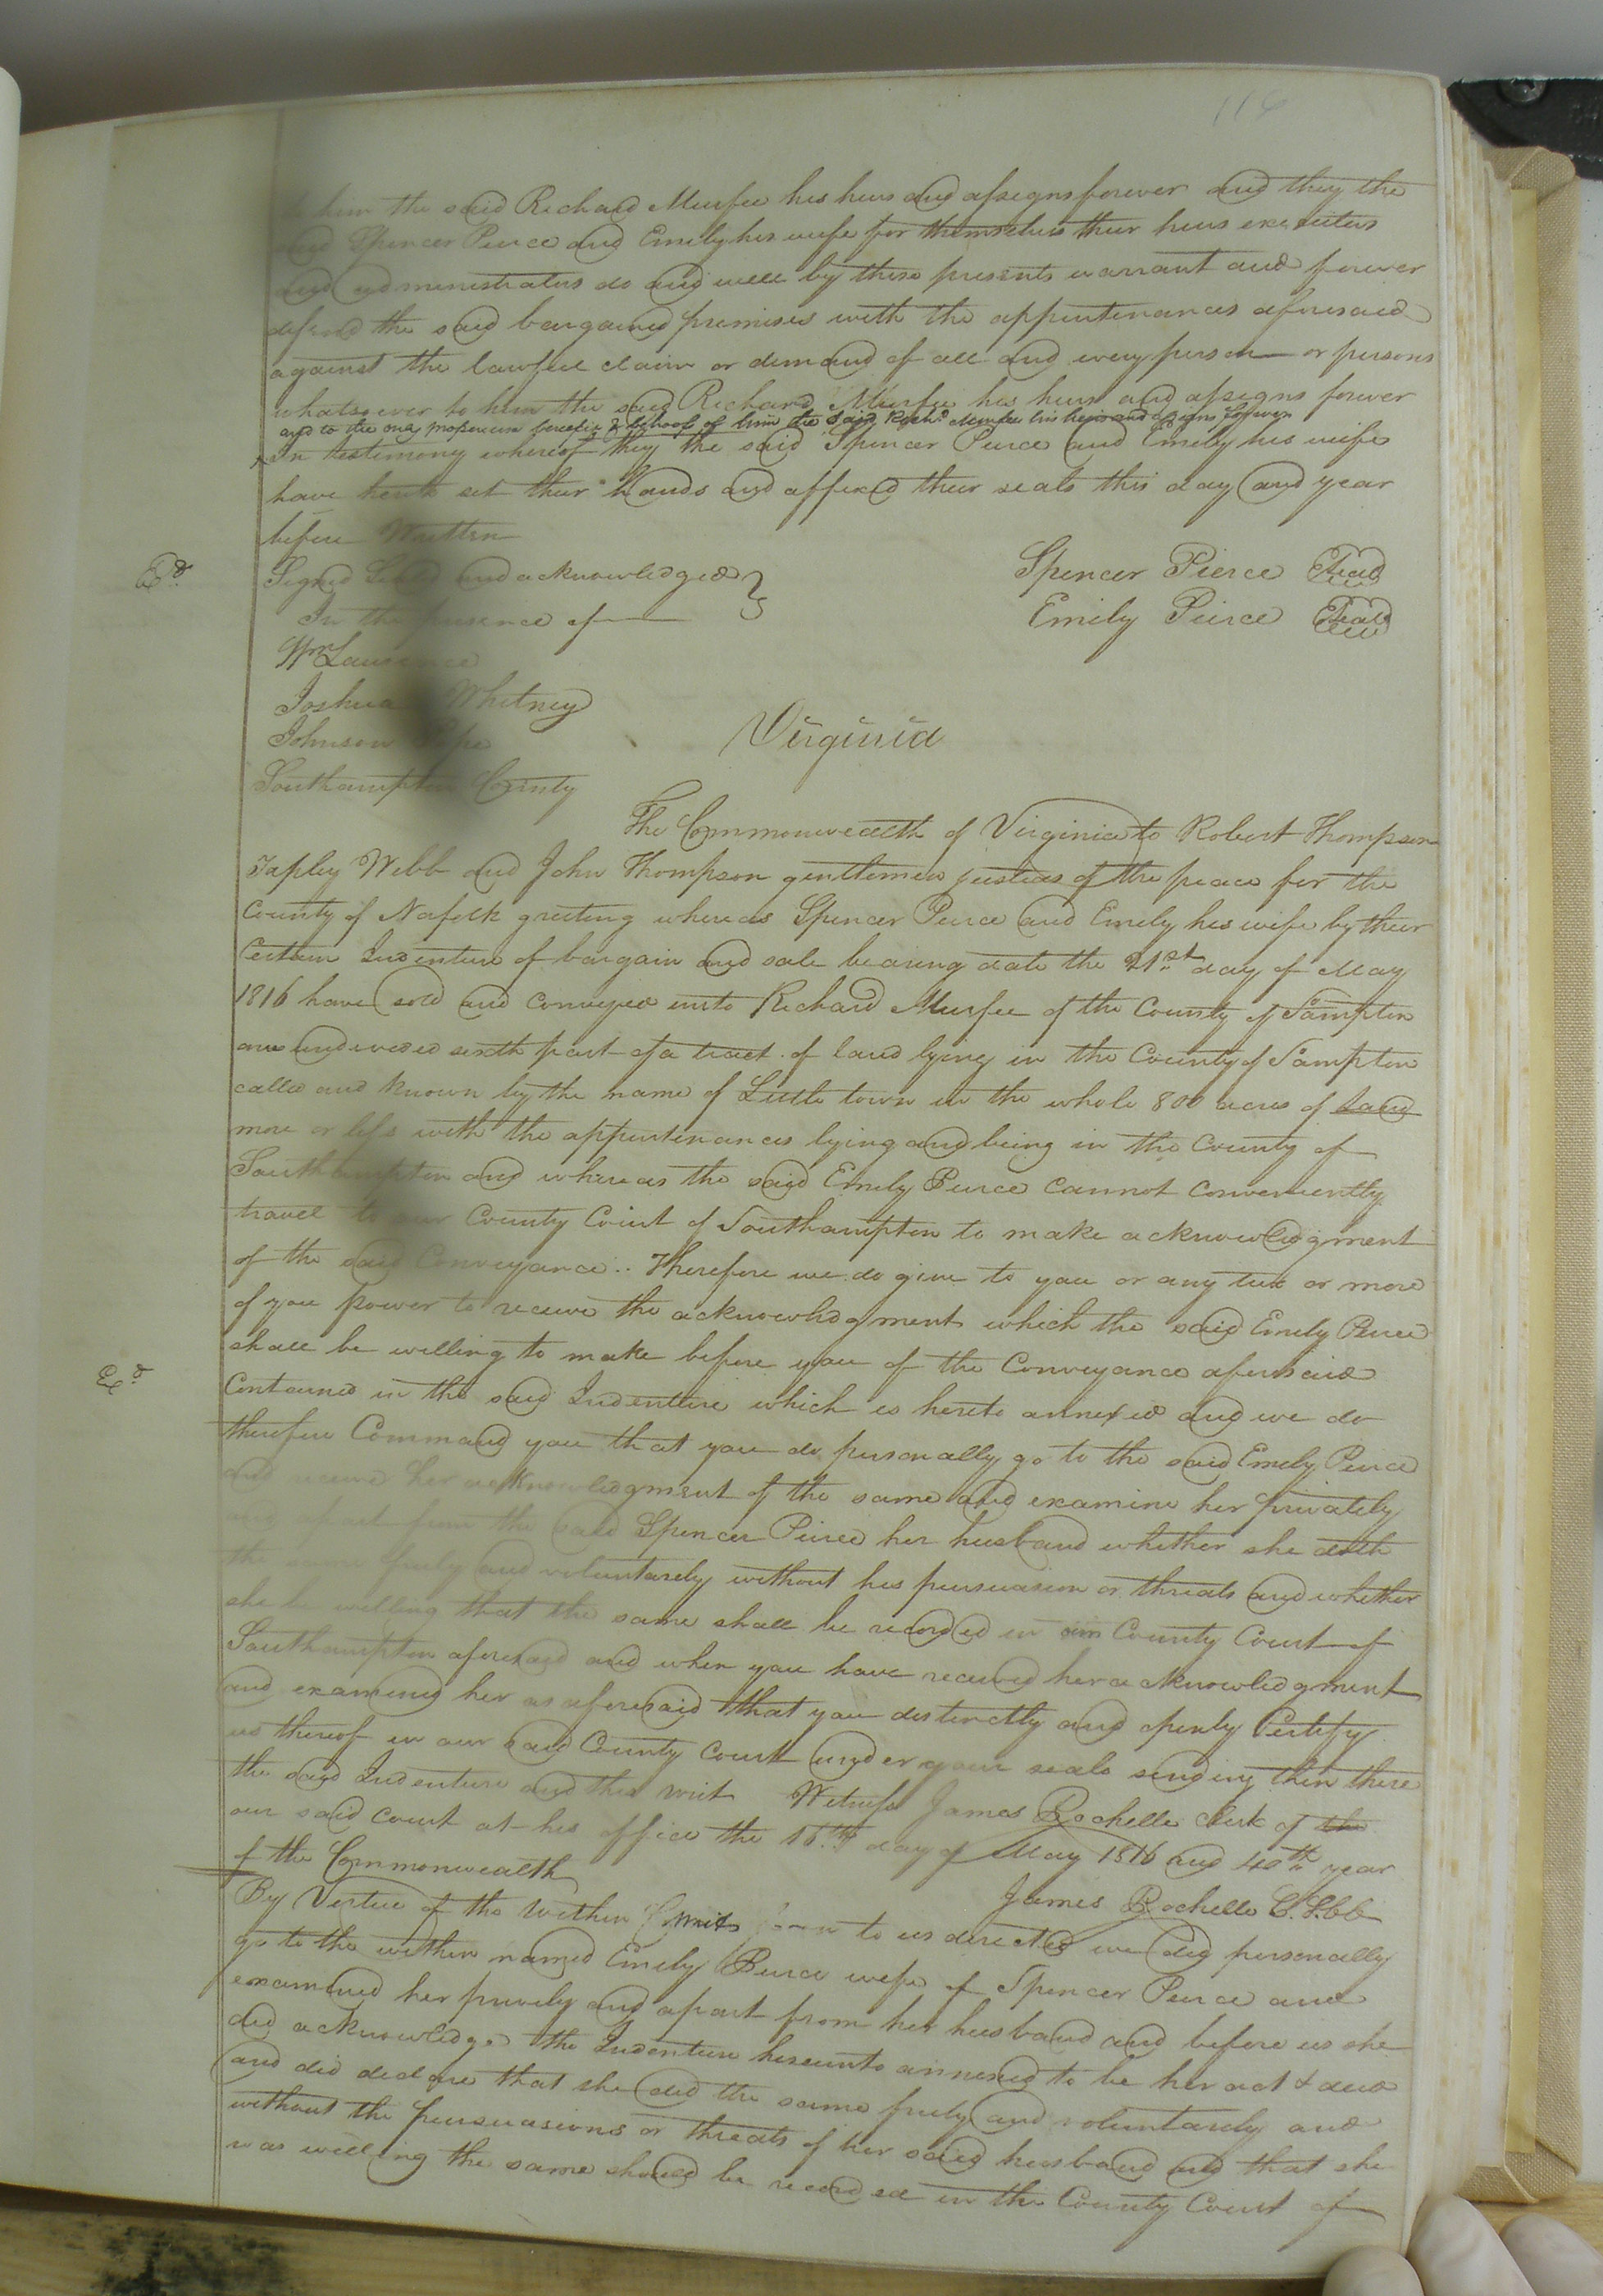 114
him the said Richard Murfee his heirs and assigns forever and they the
said Spencer Pierce and Emily his wife for themselves their heirs executers
and administrators do and will by these presents warrant and forever
defend the said bargained premises with the appurtenances aforesaid
against the lawful claim or demand of all and every person or persons
whatsoever to him the said Richard Murfee his heirs and assigns forever
and to the only proper use benefit & behoof of him the said Richd Murfee his heirs and assigns forever
In testimony whereof they the said Spencer Pierce and Emily his wife
have hereto set their hands and affixed their seals this day and year
before Written
Exd. Signed Sealed and acknowledged Spencer Pierce Seal
In the presence of Emily Pierce Seal
Wm Laurence
Joshua Whitney
Johnson Pope
Virginia
Southampton County
The Commonwealth of Virginia to Robert Thompson
Tapley Webb and John Thompson gentlemen justices of the peace for the
County of Nofolk greeting whereas Spencer Pierce and Emily his wife by their
Certain Indenture of bargain and sale bearing date the 21st day of May
1816 have sold and conveyed unto Richard Murfee of the County of Sampton
an undivided sixth part of a tract of land lying in the County of Sampton
called and known by the name of Little town in the whole 800 acres of land
more or less with the appurtenances lying and being in the County of
Southampton and whereas the said Emily Pierce cannot conveniently
travel to our County Court of Southampton to make acknowledgment
of the said Conveyance. Therefore we do give to you or any two or more
of you power to receive the acknowledgment which the said Emily Pierce
shall be willing to make before you of the Conveyance aforesaid
Exd. Contained in the said Indenture which is hereto annexed and we do
therefore Command you that you do personally go to the said Emily Pierce
and receive her acknowledgment of the same and examine her privately
and apart from the said Spencer Pierce her husband whether she doth
the same freely and voluntarily without his persuasion or threats and whether
she be willing that the same shall be recorded in our County Court of
Southampton aforesaid and when you have received her acknowledgment
and examined her as aforesaid that you distinctly and openly Certify
us thereof in our said County Court under your seals sending then there
the said Indenture and this writ Witness James Rochelle clerk of the
our said court at his office the 16th day of May 1816 and 40th year
of the Commonwealth
James Rochelle
By Virtue of the within to us directed we did personally
go to the within named Emily Pierce wife of Spencer Pierce and
examined her privily and apart from her husband and before us she
did acknowledge the Indenture hereunto annexed to be her act & deed
and did declare that she did the same freely and voluntarily and
without the persuasions or threats of her said husband and that she
was willing the same should be recorded in the County Court of